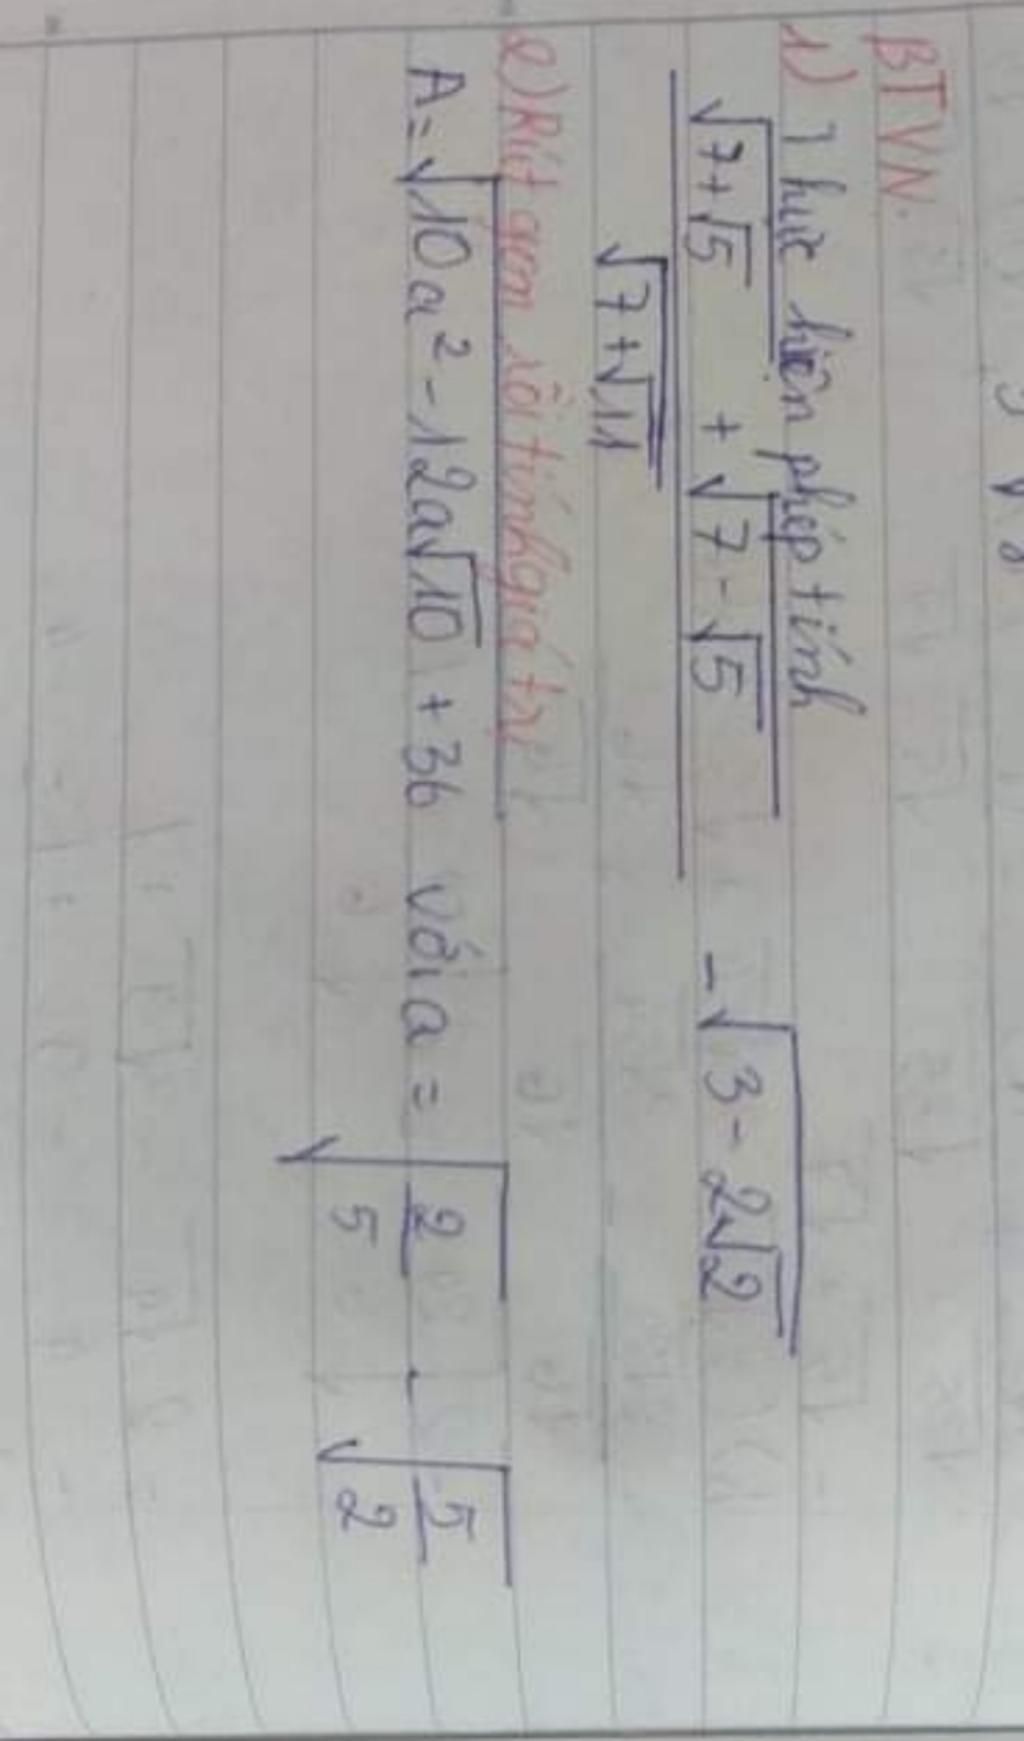 BTVN.
1) Thực hiện phép tính
√(7+√5) + √(7-√5) / √(7+√11) - √(3-2√2)
2) Rút gọn rồi tính giá trị
A = √(10a² - 12a√10 + 36) với a = √(2/5) - √(5/2)